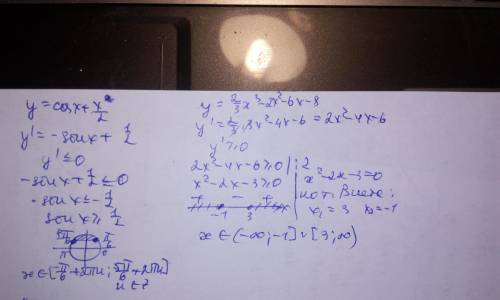 y = cosx + x/2
y' = -sinx + 1/2
y' ≤ 0
-sinx + 1/2 ≤ 0
-sinx ≤ -1/2
sinx ≥ 1/2
5π/6 π/6
π 0
x ∈ [π/6 + 2πn; 5π/6 + 2πn]
n ∈ Z
y = 2/3 x³ - 2x² - 6x - 8
y' = 2/3 · 3x² - 4x - 6 = 2x² - 4x - 6
y' ≥ 0
2x² - 4x - 6 ≥ 0 | : 2
x² - 2x - 3 ≥ 0
+ - +
-1 3
x² - 2x - 3 = 0
по т. Виета:
x₁ = 3 x₂ = -1
x ∈ (-∞; -1] ∪ [3; ∞)